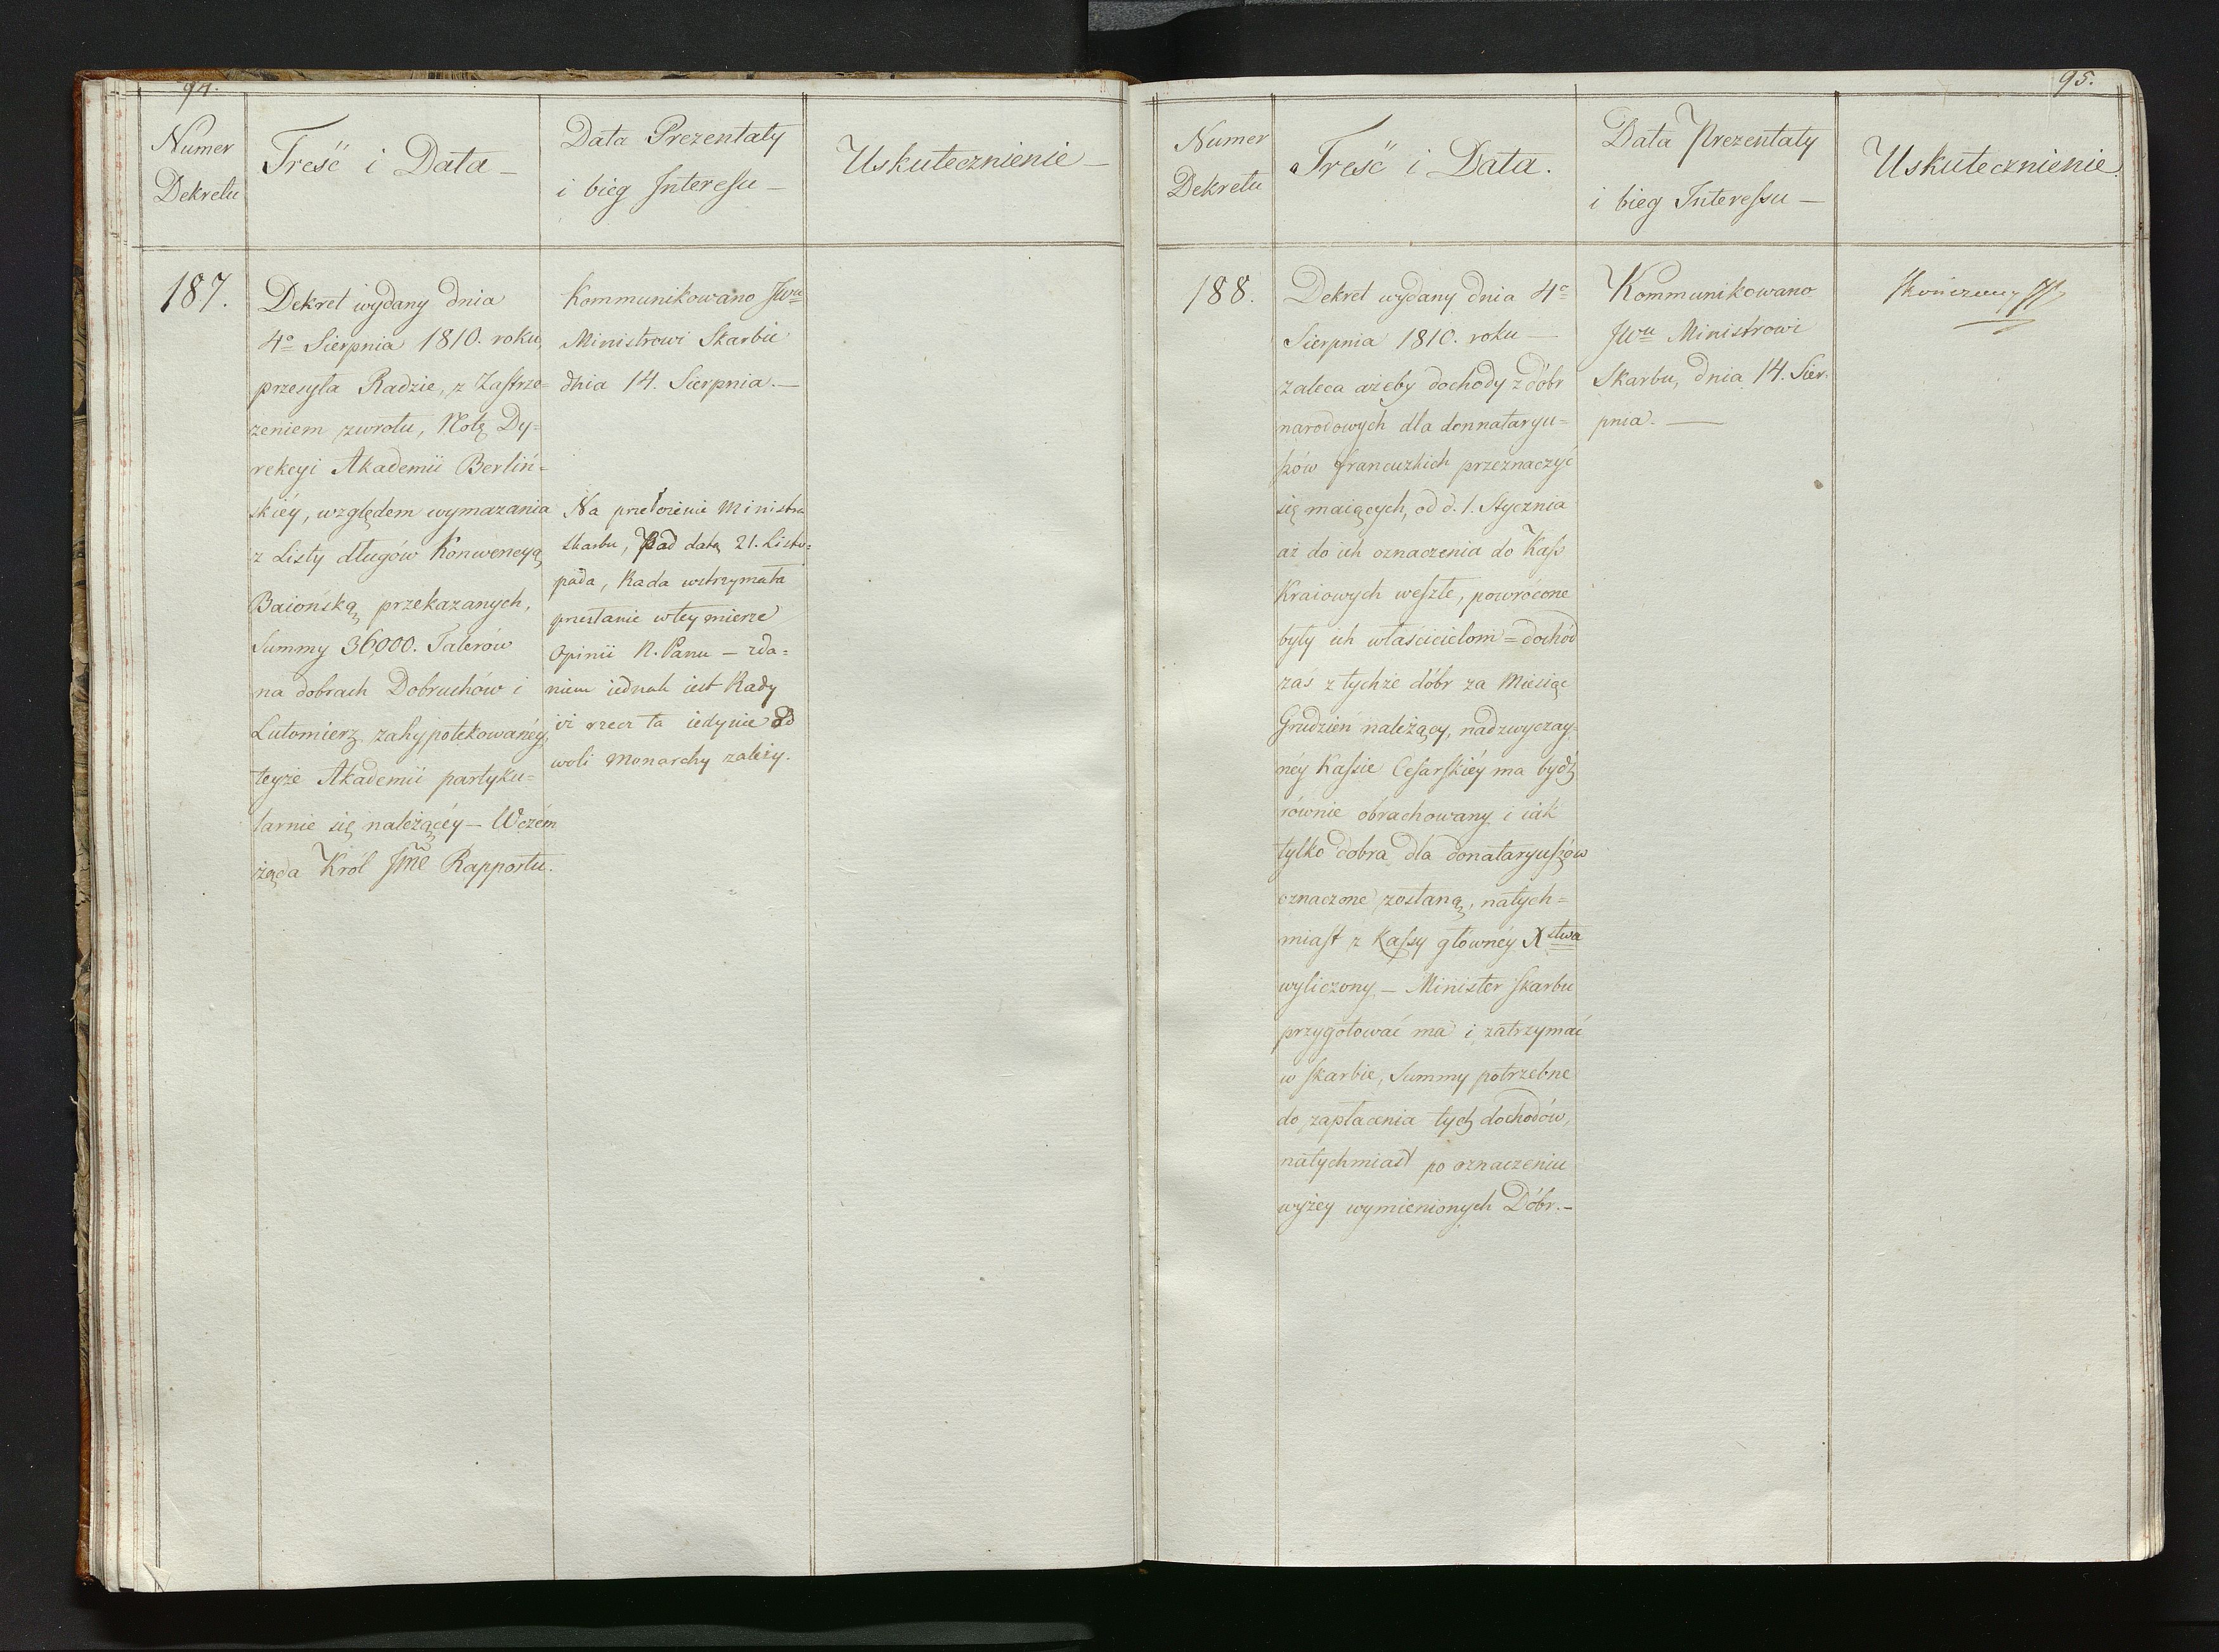 94.
Numer
Dekretu
Treść i Data —
Data Prezentaty
i bieg Interessu —
Uskutecznienie —
187.
Dekret wydany dnia
4o Sierpnia 1810. roku,
przesyła Radzie, z Zastrze=
żeniem zwrotu, Notę Dy=
rekcyi Akademii Berliń=
skiéy, względem wymazania
z Listy długów Konwencyą
Baiońską przekazanych,
Summy 36,000. Talerów
na dobrach Dobruchów i
Lutomierz zahypotekowanéy,
teyże Akademii partyku=
larnie się należącéy — W czém
żąda Król Jmć Rapportu.
Kommunikowano JWu
Ministrowi Skarbu
dnia 14. Sierpnia. —
Na przełożenie Ministra
Skarbu, Pod datą 21. Listo=
pada, Rada wstrzymała
przesłanie w tey mierze
Opinii N. Panu — zda=
niem iednak iest Rady
iż rzecz ta iedynie od
woli Monarchy zależy.
95.
Numer
Dekretu
Treść i Data.
Data Prezentaty
i bieg Interessu —
Uskutecznienie
188.
Dekret wydany dnia 4o
Sierpnia 1810. roku —
zaleca ażeby dochody z dóbr
narodowych dla donnataryu=
szów francuzkich przeznaczyć
się maiących, od d. 1. Stycznia
aż do ich oznaczenia do Kass
Kraiowych weszłe, powrócone
były ich właścicielom = dochód
zaś z tychże dóbr za Miesiąc
Grudzień należący, nadzwyczay=
néy Kassie Cesarskiéy ma bydź
równie obrachowany i iak
tylko dobra dla donataryuszów
oznaczone zostaną, natych=
miast z Kassy główney Xstwa
wyliczony — Minister Skarbu
przygotować ma i zatrzymać
w skarbie, Summy potrzebne
do zapłacenia tych dochodów,
natychmiast po oznaczeniu
wyżey wymienionych Dóbr. —
Kommunikowano
JWu Ministrowi
Skarbu, dnia 14. Sier=
pnia. —
skończony